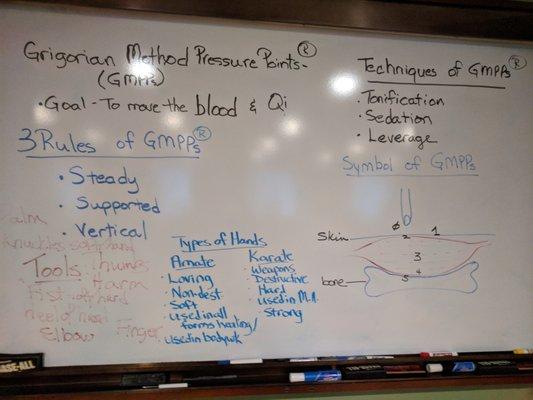 Grigorian Method Pressure Points- ®
(GMPPs)
• Goal - To move the blood & Qi
3 Rules of GMPPs ®
• Steady
• Supported
• Vertical
Palm
Knuckles soft/hard
Tools: Thumbs
Fist soft/hard Farm
Heel of hand
Elbow Finger
Types of Hands
Amate
• Loving
• Non-dest
• Soft
• used in all
forms healing/
• used in bodywk
Karate
• Weapons
• Destructive
• Hard
• used in M.A.
• Strong
Techniques of GMPPs ®
• Tonification
• Sedation
• Leverage
Symbol of GMPPs
Skin
0
1
2
3
4
5
bone